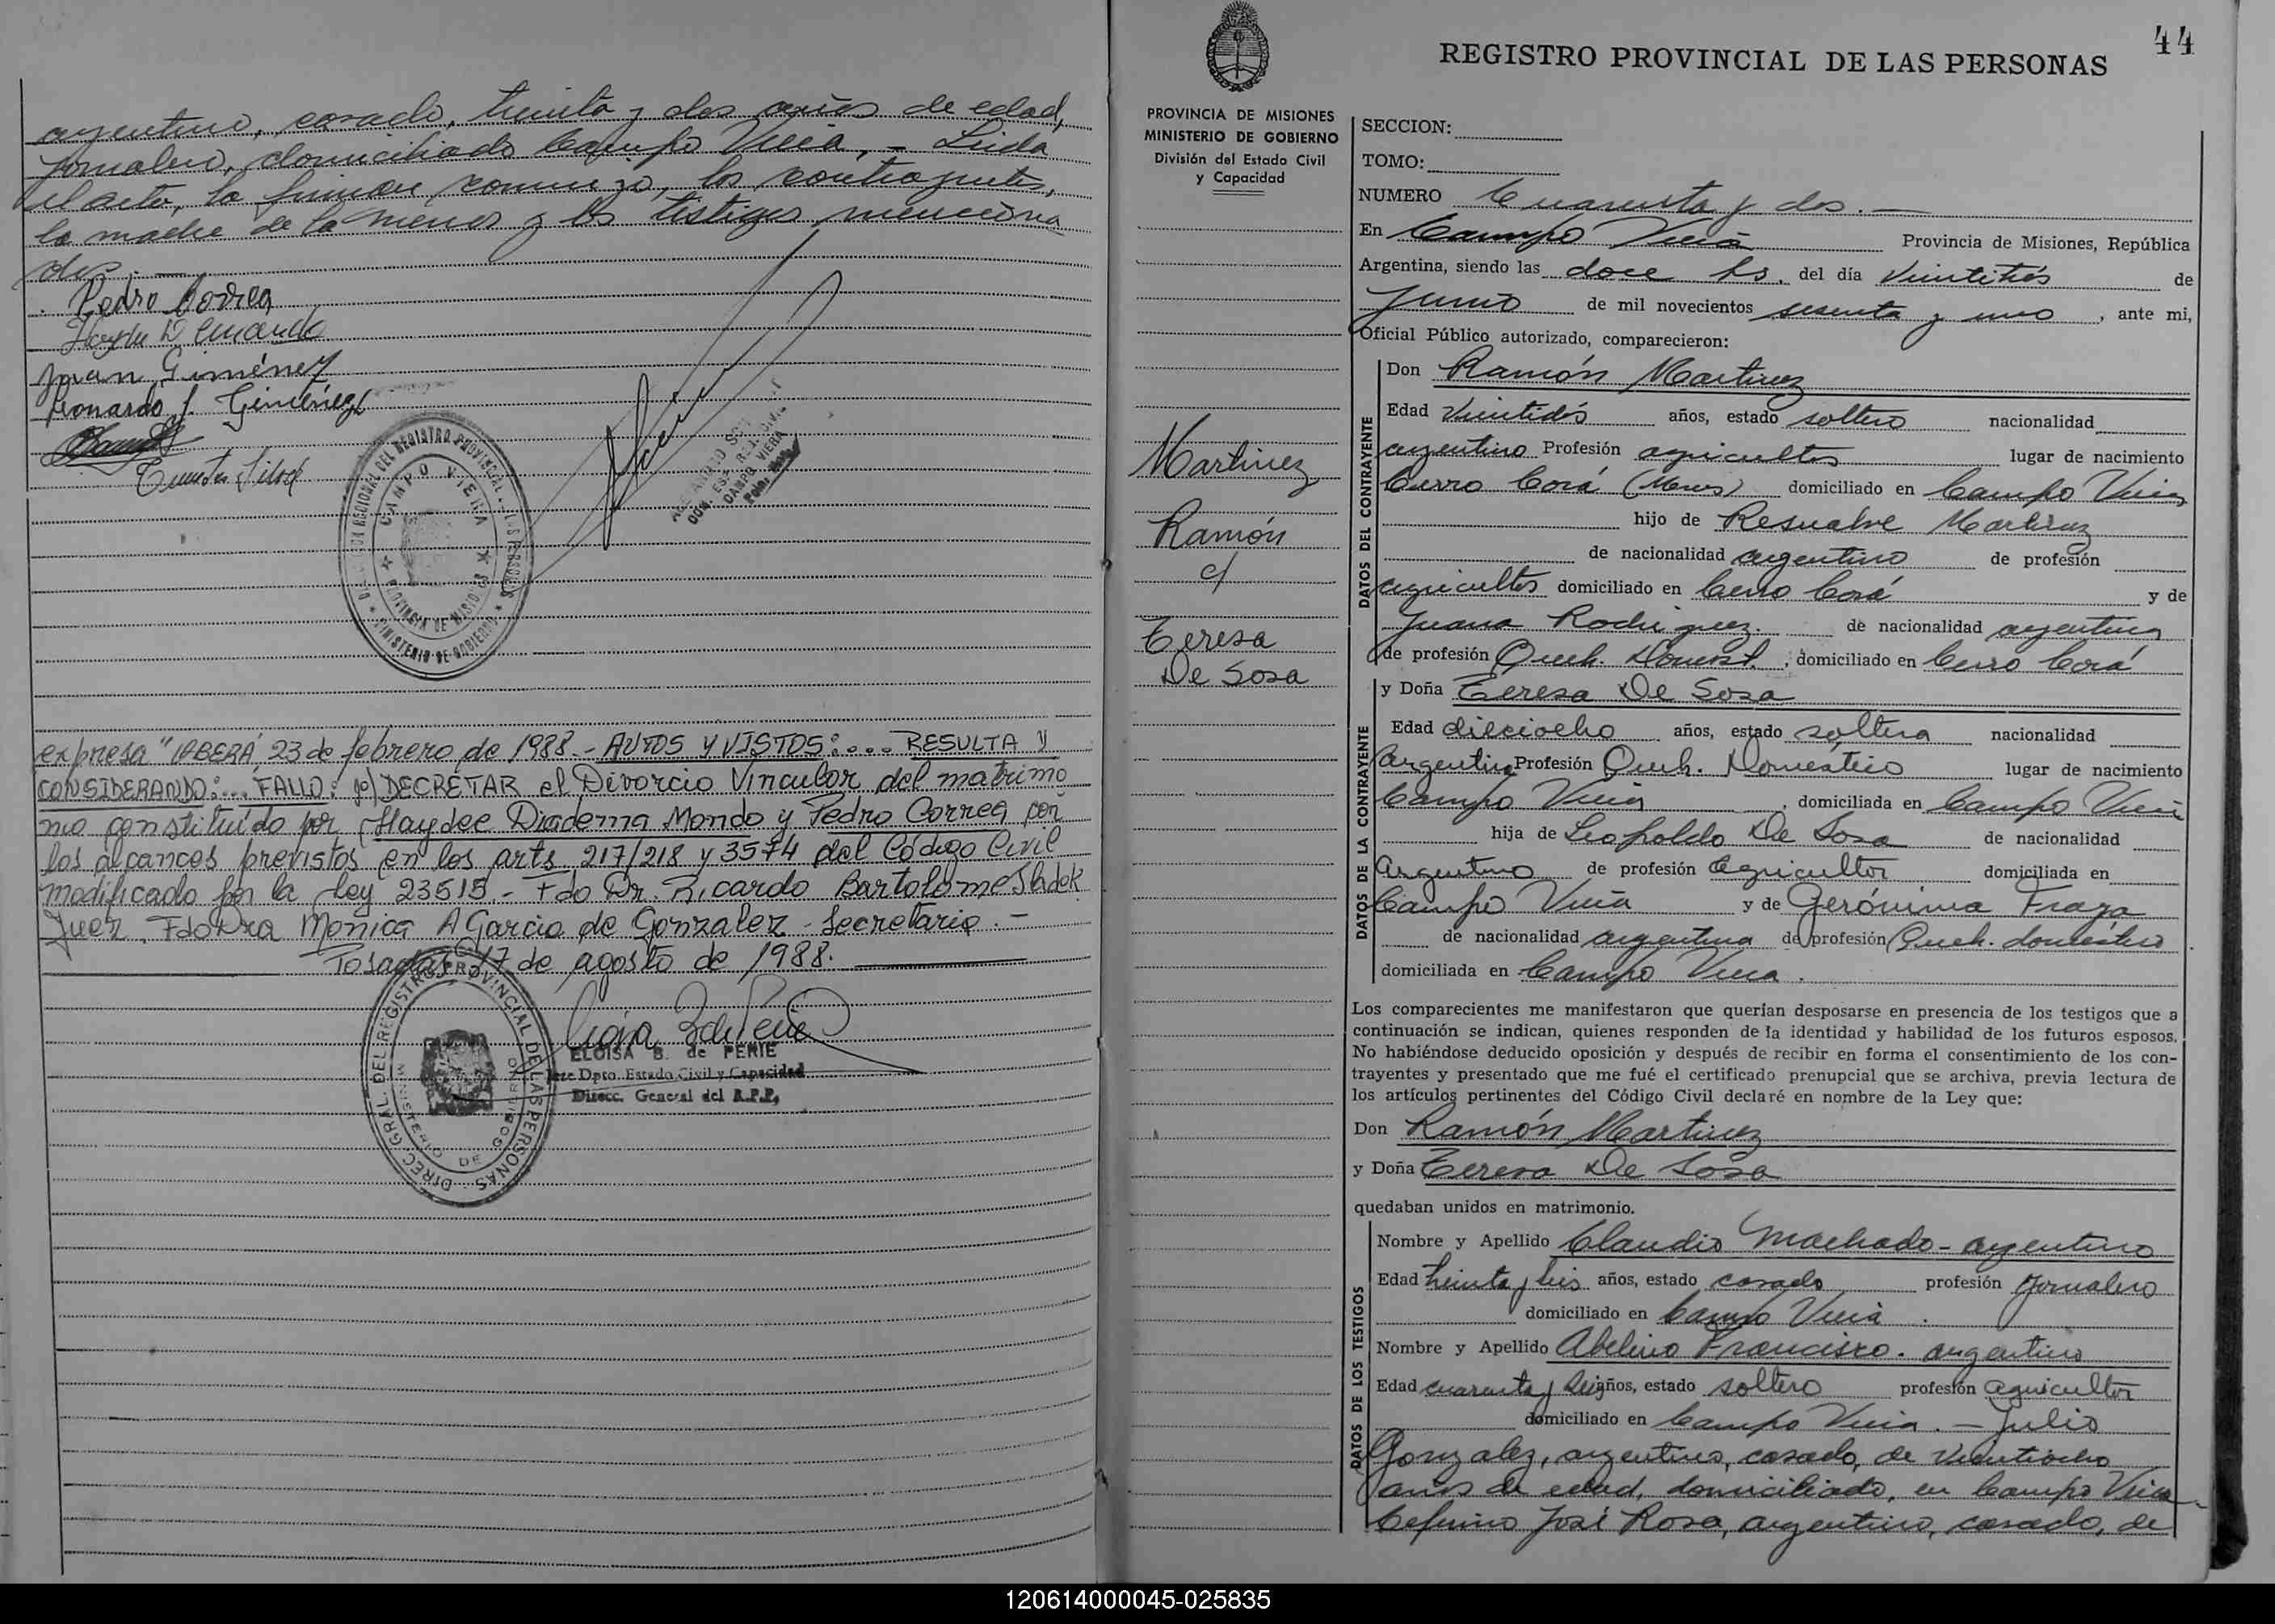 argentino, casado, treinta y dos años de edad,
jornalero, domiciliado Campo Viera, - Leida
el acta, la firman conmigo, los contrayentes,
la madre de la menor y los testigos menciona
dos. —
Pedro Correa
Juan Giménez
Leonardo J. Giménez
DIRECCION REGIONAL DEL REGISTRO PROVINCIAL DE LAS PERSONAS
CAMPO VIERA
PROVINCIA DE MISIONES
MINISTERIO DE GOBIERNO
CAMPO VIERA
expresa "OBERÁ, 23 de febrero de 1988.- AUTOS Y VISTOS:.... RESULTA Y
CONSIDERANDO:... FALLO: 1º) DECRETAR el Divorcio Vincular del matrimo
nio constituído por Haydee Diadema Mondo y Pedro Correa con
los alcances previstos en los arts. 217/218 y 3574 del Código Civil
modificado por la Ley 23515.- Fdo Dr. Ricardo Bartolome
Juez. Fdo Dra Monica A Garcia de Gonzalez - Secretaria. -
Posadas, 17 de agosto de 1988.
ELOISA B. de PERIE
Jefe Dpto. Estado Civil y Capacidad
Direcc. General del R.P.P.
DIREC. GRAL. DEL REGISTRO PROVINCIAL DE LAS PERSONAS
MINISTERIO DE GOBIERNO
44
REGISTRO PROVINCIAL DE LAS PERSONAS
PROVINCIA DE MISIONES
MINISTERIO DE GOBIERNO
División del Estado Civil
y Capacidad
Martinez
Ramón
c/
Teresa
De Sosa
SECCION:
TOMO:
NUMERO Cuarenta y dos. —
En Campo Viera Provincia de Misiones, República
Argentina, siendo las doce hs. del día veintitrés de
Junio de mil novecientos sesenta y uno, ante mi,
Oficial Público autorizado, comparecieron:
DATOS DEL CONTRAYENTE
Don Ramón Martinez
Edad veintidós años, estado soltero nacionalidad
argentino Profesión agricultor lugar de nacimiento
Cerro Corá (Mnes) domiciliado en Campo Viera
hijo de Martinez
de nacionalidad argentino de profesión
agricultor domiciliado en Cerro Corá y de
Juana Rodriguez. de nacionalidad argentina
de profesión Queh. Domést., domiciliado en Cerro Corá
y Doña Teresa De Sosa
DATOS DE LA CONTRAYENTE
Edad dieciocho años, estado soltera nacionalidad
Argentina Profesión Queh. Doméstico lugar de nacimiento
Campo Viera, domiciliada en Campo Viera
hija de Leopoldo De Sosa de nacionalidad
Argentino de profesión Agricultor domiciliada en
Campo Viera y de Gerónima Fraga
de nacionalidad argentina de profesión Queh. doméstico
domiciliada en Campo Viera.
Los comparecientes me manifestaron que querían desposarse en presencia de los testigos que a
continuación se indican, quienes responden de la identidad y habilidad de los futuros esposos.
No habiéndose deducido oposición y después de recibir en forma el consentimiento de los con-
trayentes y presentado que me fué el certificado prenupcial que se archiva, previa lectura de
los artículos pertinentes del Código Civil declaré en nombre de la Ley que:
Don Ramón Martinez
y Doña Teresa De Sosa
quedaban unidos en matrimonio.
DATOS DE LOS TESTIGOS
Nombre y Apellido Claudio Machado - argentino
Edad treinta y años, estado casado profesión Jornalero
domiciliado en Campo Viera.
Nombre y Apellido Abelino Francisco. argentino
Edad cuarenta y seis años, estado soltero profesión agricultor
domiciliado en Campo Viera. - Julio
Gonzalez, argentino, casado, de veintiocho
años de edad, domiciliado, en Campo Viera
Ceferino José Rosa, argentino, casado, de
120614000045-025835